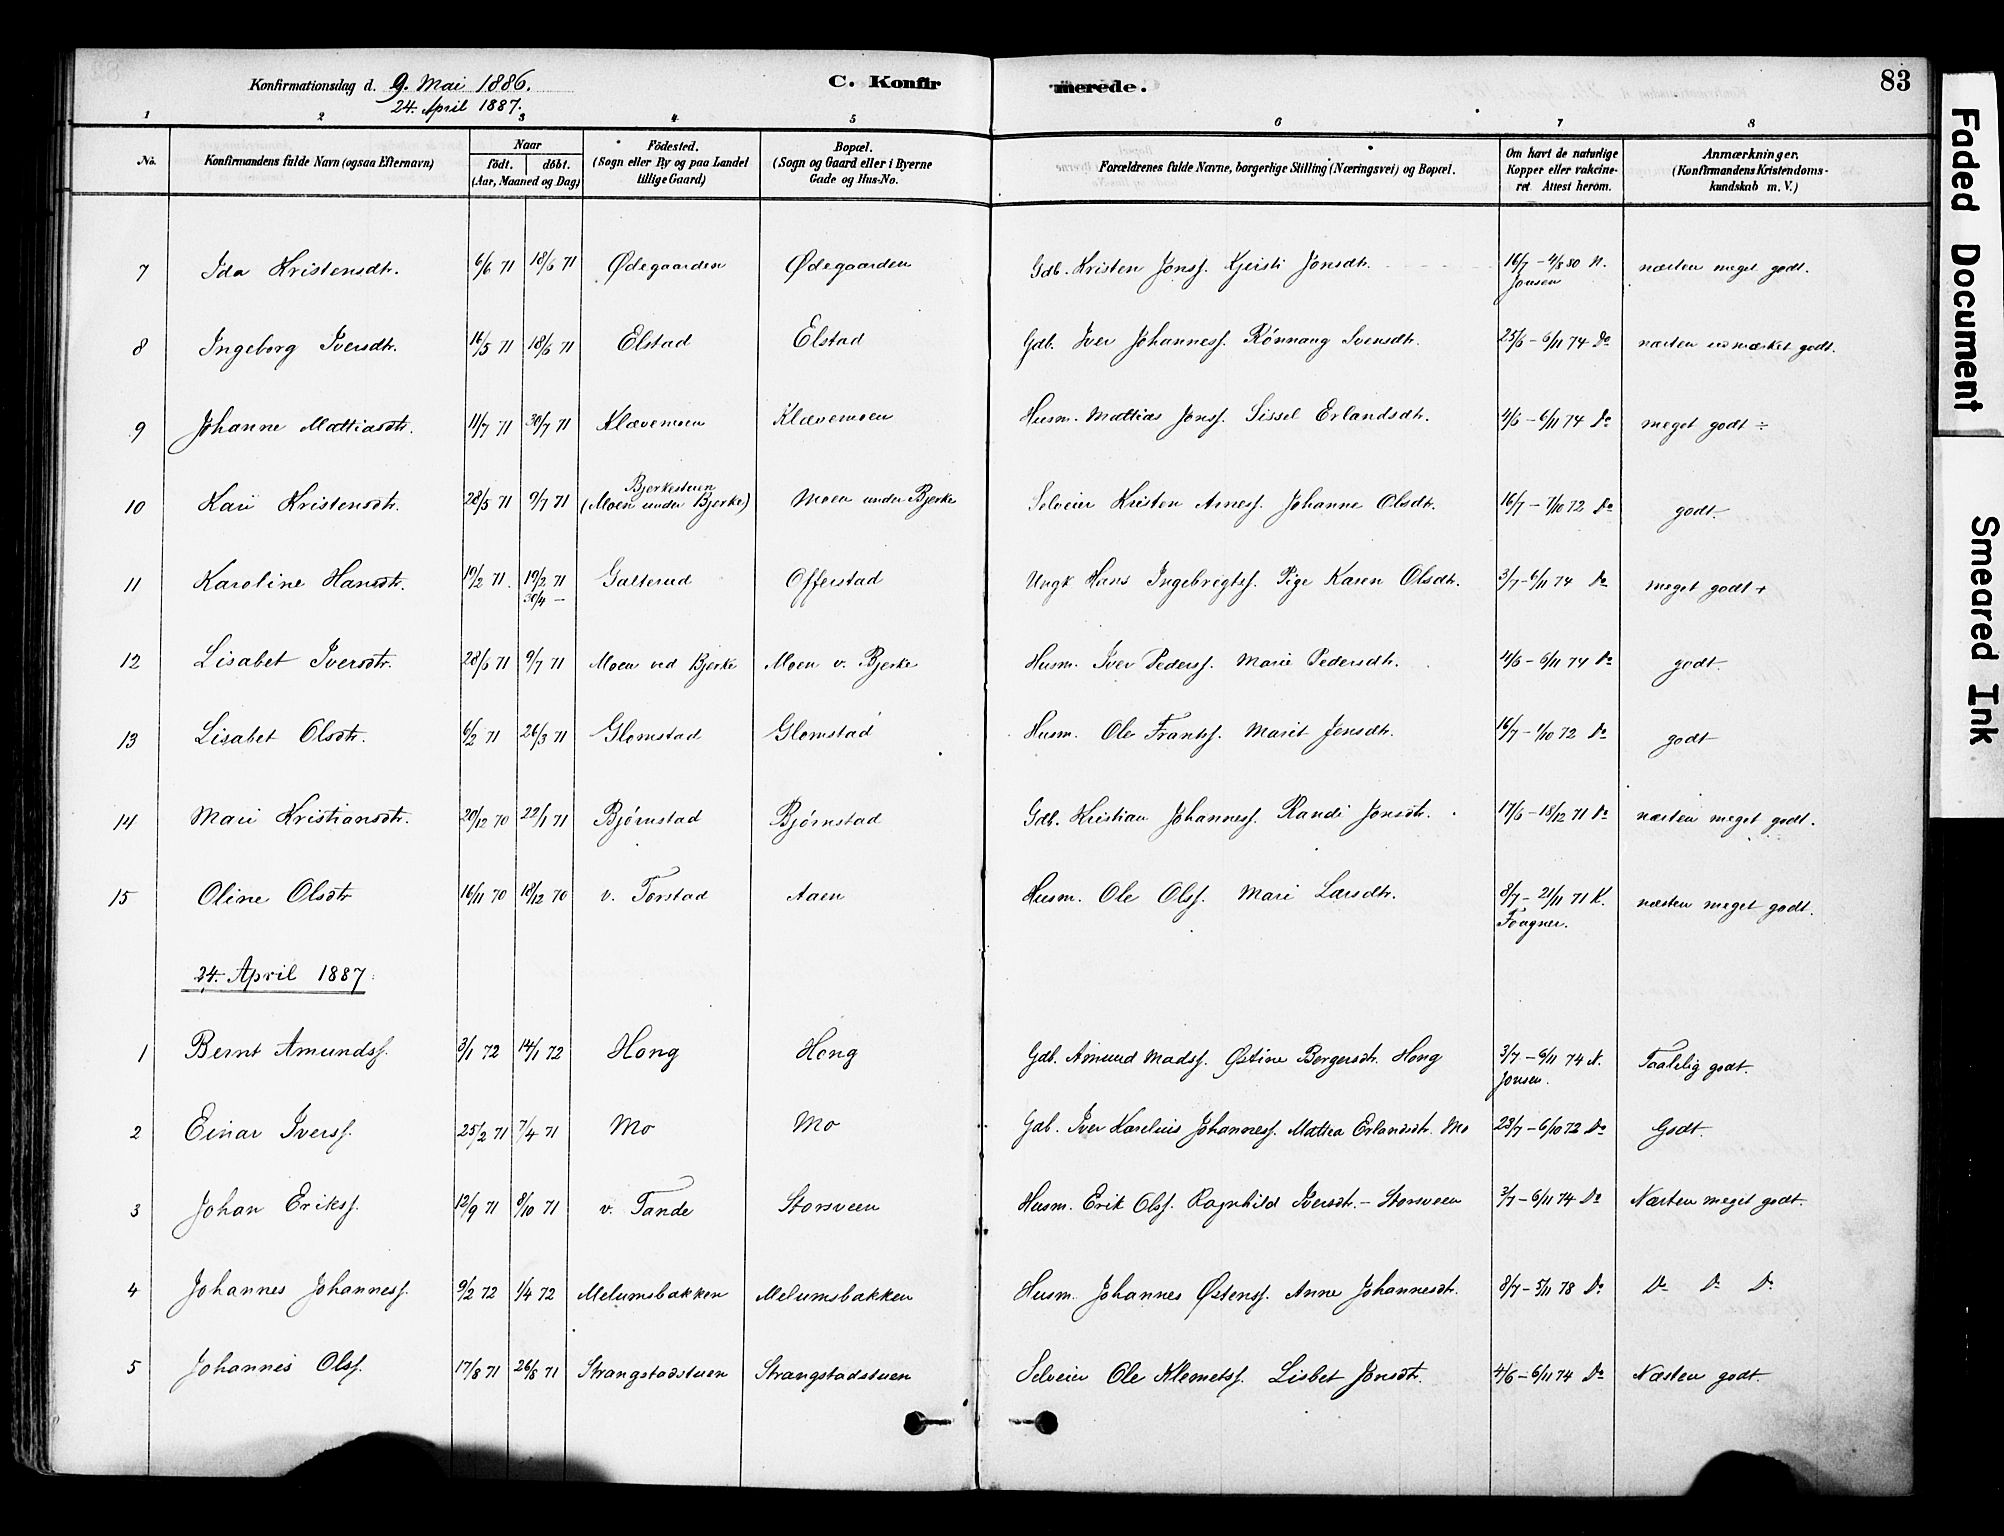 Konfirmationsdag d. 9. Mai 1886.
24. April 1887.
C. Konfirmerede.
83
1 2 3 4 5 6 7 8
No.
Konfirmandens fulde Navn (ogsaa Efternavn)
Naar
født. døbt.
(Aar, Maaned og Dag)
Födested.
(Sogn eller By og paa Landet
tillige Gaard)
Bopæl.
(Sogn og Gaard eller i Byerne
Gade og Hus-No.
Forældrenes fulde Navne, borgerlige Stilling (Næringsvei) og Bopæl.
Om havt de naturlige
Kopper eller vakcine-
ret Attest herom.
Anmærkninger.
(Konfirmandens Kristendoms-
kundskab m. V.)
7 Ida Kristensdtr. 6/6 71 18/6 71 Ødegaarden Ødegaarden Gdb. Kristen Jonsf. Kjersti Jonsdtr. 16/7 - 4/8 80 N.
Jonsen
næsten meget godt.
8 Ingeborg Iversdtr. 16/5 71 18/6 71 Elstad Elstad Gdb. Iver Johannesf. Rønnaug Svensdtr. 25/6 - 6/11 74 Do næsten udmærket godt.
9 Johanne Mattiasdtr. 11/7 71 30/7 71 Klævemoen Klævemoen Husm. Mattias Jonsf. Sissel Erlandsdtr. 4/6 - 6/11 74 Do meget godt ÷
10 Kari Kristensdtr. 28/5 71 9/7 71 Bjerkestuen
(Moen under Bjerke) Moen under Bjerke Selveier Kristen Arnesf. Johanne Olsdtr. 16/7 - 7/10 72 Do godt.
11 Karoline Hansdtr. 19/2 71. 19/2 71
30/4 —
Galterud Offerstad Ungk Hans Ingebrigtsf. Pige Karen Olsdtr. 3/7 - 6/11 74 Do meget godt +
12 Lisabet Iversdtr. 28/6 71 9/7 71 Moen ved Bjerke Moen v. Bjerke Husm. Iver Pedersf. Marie Pedersdtr. 4/6 - 6/11 74 Do godt.
13 Lisabet Olsdtr. 6/2 71 26/3 71 Glomstad Glomstad Husm. Ole Frantsf. Marit Jensdtr. 16/7 - 1/10 72 Do godt
14 Mari Kristiansdtr. 20/12 70 22/1 71 Bjørnstad Bjørnstad Gdb. Kristian Johannesf. Randi Jonsdtr. 17/6 - 18/12 71 Do næsten meget godt.
15 Oline Olsdtr 16/11 70 18/12 70 v. Torstad Aaen Husm. Ole Olsf. Mari Larsdtr. 8/7 - 21/11 71 K.
Fougner.
næsten meget godt.
24. April 1887.
1 Bernt Amundsf. 3/1 72 14/1 72 Hong Hong Gdb. Amund Madsf. Østine Børgersdtr. Hong 3/7 - 6/11 74 N.
Jonsen.
Taalelig godt.
2 Einar Iversf. 25/2 71 7/4 71 Mo Mo Gdb. Iver Karelius Johannesf. Mathea Erlandsdtr. Mo 23/7 - 6/10 72 Do Godt.
3 Johan Eriksf. 12/9 71 8/10 71 v. Tande Storsveen Husm. Erik Olsf. Ragnhild Iversdtr. - Storsveen 3/7 - 6/11 74 Do Næsten meget godt.
4 Johannes Johannesf. 9/2 72 1/4 72 Melumsbakken Melumsbakken Husm. Johannes Østensf. Anne Johannesdtr. 8/7 - 5/11 78 Do Do Do Do
5 Johannes Olsf. 17/8 71 26/8 71 Strangstadstuen Strangstadstuen Selveier Ole Klemetsf. Lisbet Jonsdtr. 4/6 - 6/11 74 Do Næsten godt.
Faded Document
Smeared Ink